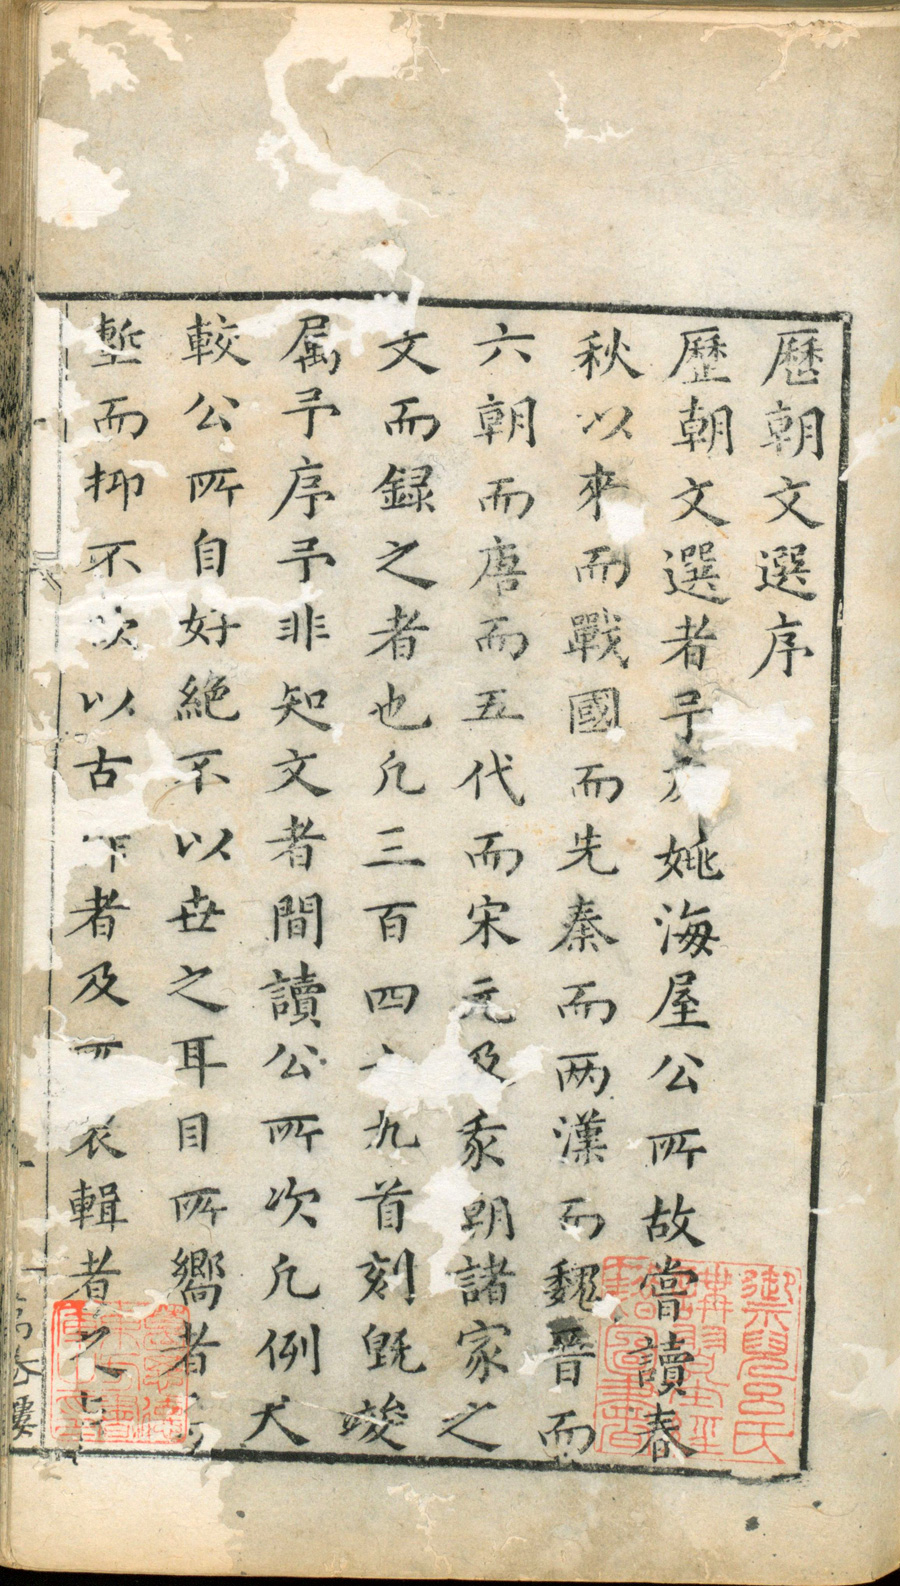 歷朝文選序
歷朝文選者予友姚海屋公所故嘗讀春
秋以來而戰國而先秦而两漢而魏晉而
六朝而唐而五代而宋元及我朝諸家之
文而録之者也凡三百四十九首刻旣竣
属予序予非知文者間讀公所次凡例大
較公所自好絶不以世之耳目所嚮者
塹而抑不次以古下者及衣輯者之
樓
御兒呂氏
講習堂經
籍圖書